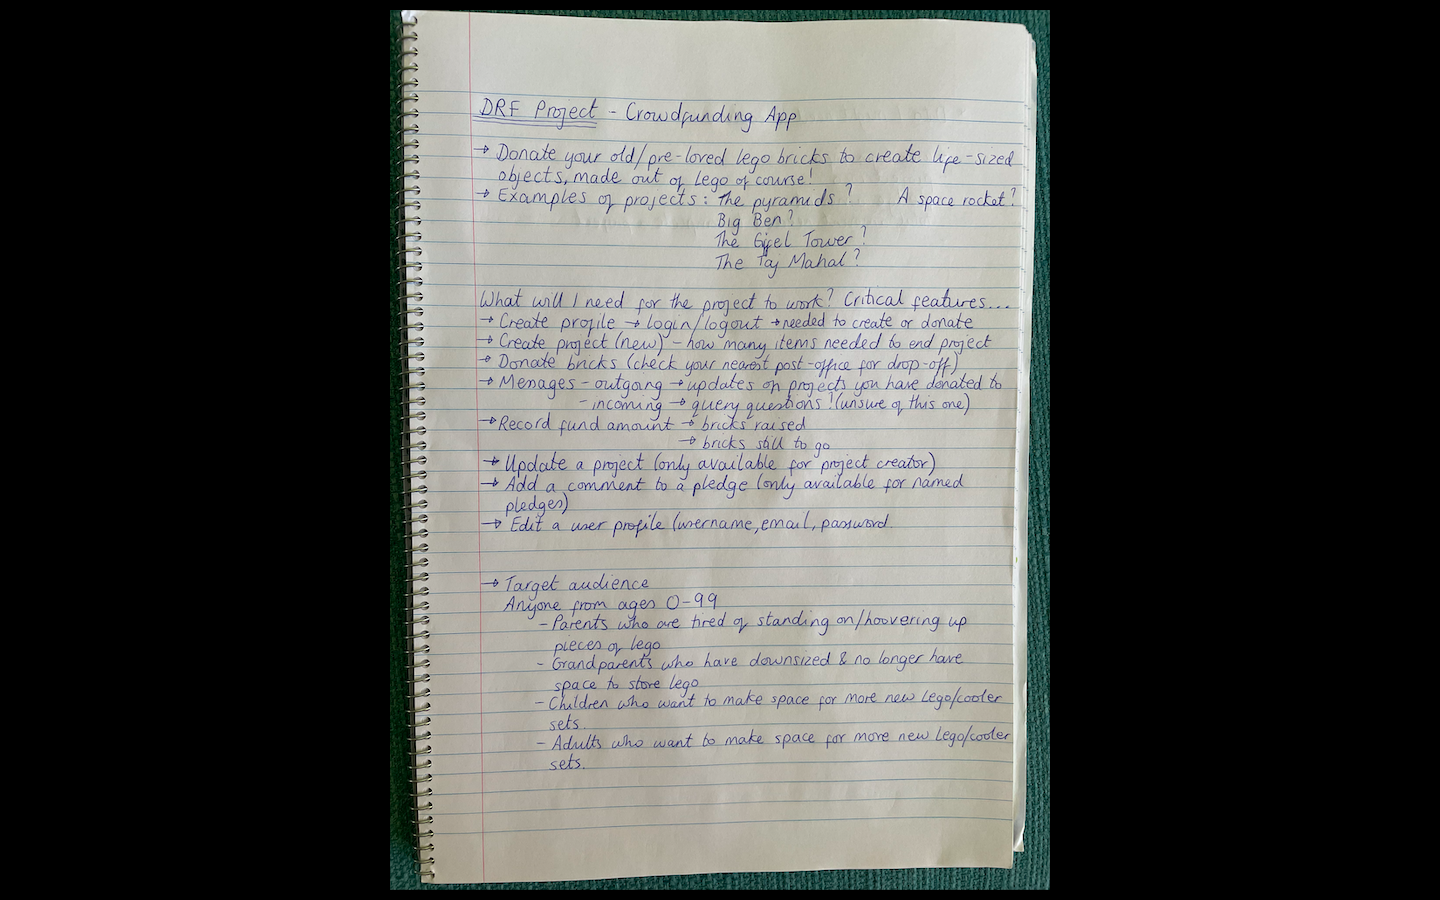 DRF Project - Crowdfunding App
→ Donate your old/pre-loved lego bricks to create life-sized
objects, made out of Lego of course!
→ Examples of projects: The pyramids? A space rocket?
Big Ben?
The Eiffel Tower?
The Taj Mahal?
What will I need for the project to work? Critical features...
→ Create profile → login/logout → needed to create or donate
→ Create project (new) - how many items needed to end project
→ Donate bricks (check your nearest post-office for drop-off)
→ Messages - outgoing → updates on projects you have donated to
- incoming → query questions? (unsure of this one)
→ Record fund amount → bricks raised
→ bricks still to go
→ Update a project (only available for project creator)
→ Add a comment to a pledge (only available for named
pledges)
→ Edit a user profile (username, email, password
→ Target audience
Anyone from ages 0-99
- Parents who are tired of standing on/hoovering up
pieces of lego
- Grandparents who have downsized & no longer have
space to store lego
- Children who want to make space for more new Lego/cooler
sets.
- Adults who want to make space for more new Lego/cooler
sets.